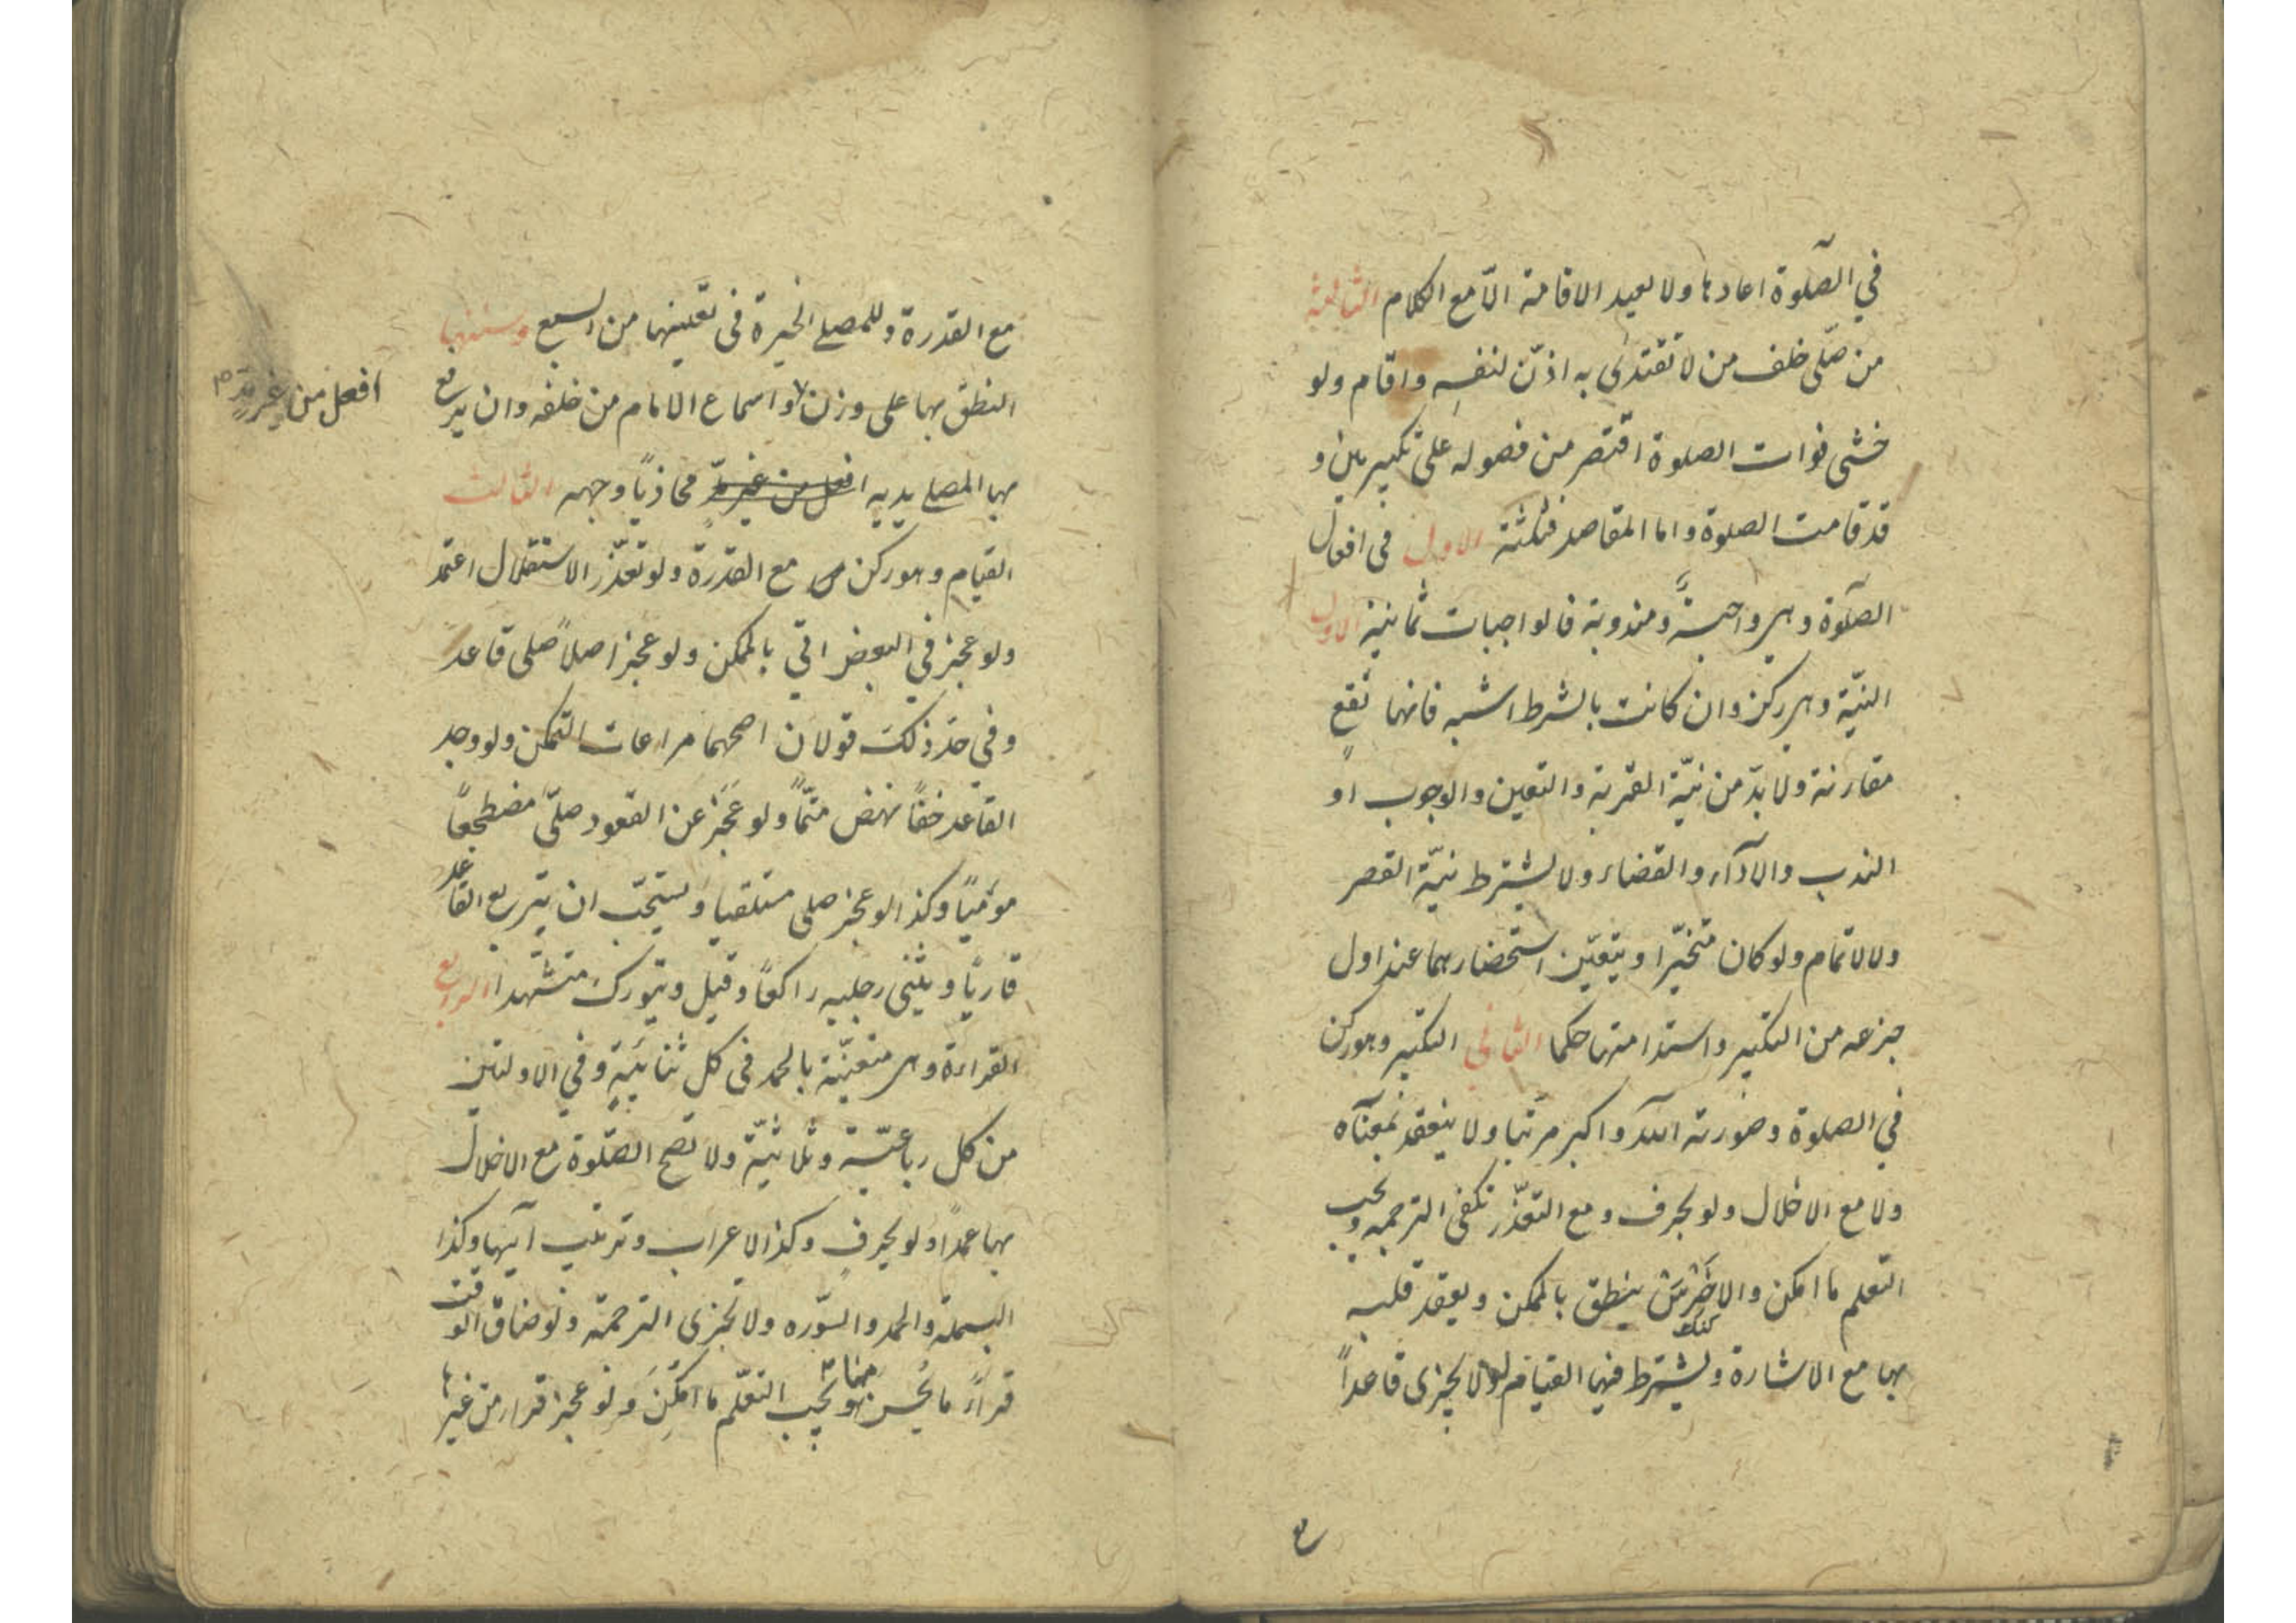 في الصّلوة اعادها ولا يعيد الاقامة الّا مع الكلام الثالثة
من صلّى خلف من لا تقتدى به اذّن لنفسه واقام ولو
خشى فوات الصلوة اقتصر من فصوله على تكبيرين و
قد قامت الصلوة واما المقاصد فثلثة الاول في افعال
الصلوة وهي واجبة ومندوبة فالواجبات ثمانية الاول
النيّة وهي ركن وان كانت بالشرط اشبه فانها تقع
مقارنة ولا بدّ من نيّة القربة والتعين والوجوب او
الندب والادآء والقضاء ولا يشترط نيّة القصر
ولا لاتمام ولو كان متخيّرا ويتعيّن استحضارهما عند اول
جزءه من التكبير واستدامتها حكما الثاني التكبير وهو ركن
في الصلوة وصورته الله اكبر مرتبا ولا ينعقد بمعناه
ولا مع الاخلال ولو بحرف ومع التعذّر تكفى الترجمه ويجب
التعلم ما امكن والاخرس ينطق بالممكن ويعقد قلبه
كنك
بها مع الاشارة ويشترط فيها القيام ولا يجزى قاعداً
مع
مع القدرة وللمصلي الخيرة في تعيينها من السبع وسننها
النطق بها على وزن واسماع الامام من خلفه وان يرفع
افعل من غير مدّ
بها المصلي يديه افعل من غير مدّ محاذياً وجهه الثالث
القيام وهو ركن مع القدرة ولو تعذّر الاستقلال اعتمد
ولو عجز في البعض اتي بالممكن ولو عجز اصلاً صلى قاعد
وفي حدّ ذلك قولان اصحهما مراعات التمكن ولو وجد
القاعد خفاً نهض متمّاً ولو عجز عن القعود صلّى مضطجعاً
مومياً وكذا لو عجز صلى مستلقيا ويستحبّ ان يتربع القاعد
قارياً ويثني رجليه راكعاً وقيل ويتورك متشهّدا الرابع
القراءة وهي متعيّنة بالحمد في كل ثنائيّةٍ وفي الاولتين
من كل رباعيّة وثلاثيّة ولا تصح الصّلوة مع الاخلال
بها عمداً ولو بحرفٍ وكذا الاعراب وترتيب آيها وكذا
البسملة والحمد والسّوره ولا تجزى الترجمة ولو ضاق الوقت
قرأ ما يحسن منها ويجب التعلّم ما امكن ولو عجز قراء من غيرها